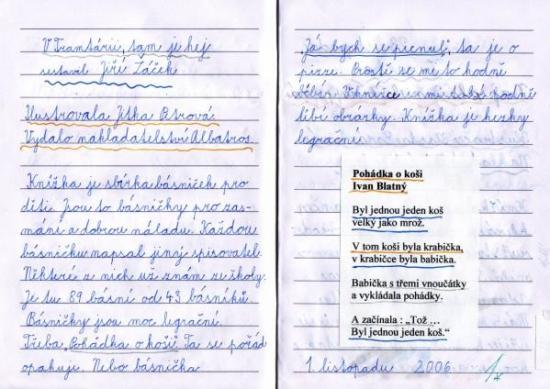 V Tramtárii, tam je hej
sestavil Jiří Žáček
Ilustrovala Jitka Petrová
Vydalo nakladatelství Albatros.
Knížka je sbírka básniček pro
děti. Jsou to básničky pro zas-
mání a dobrou náladu. Každou
básničku napsal jiný spisovatel.
Některé z nich už znám ze školy.
Je tu 89 básní od 43 básníků.
Básničky jsou moc legrační.
Třeba Pohádka o koši. Ta se pořád
opakuje. Nebo básnička
„Já bych se picnul“, ta je o
pizze. Prostě se mi to hodně
líbí. V knížce se mi hodně
líbí obrázky. Knížka je hezky
legrační.
Pohádka o koši
Ivan Blatný
Byl jednou jeden koš
velký jako mrož.
V tom koši byla krabička,
v krabičce byla babička.
Babička s třemi vnoučátky
a vykládala pohádky.
A začínala : „Tož ...
Byl jednou jeden koš.“
1. listopadu 2006